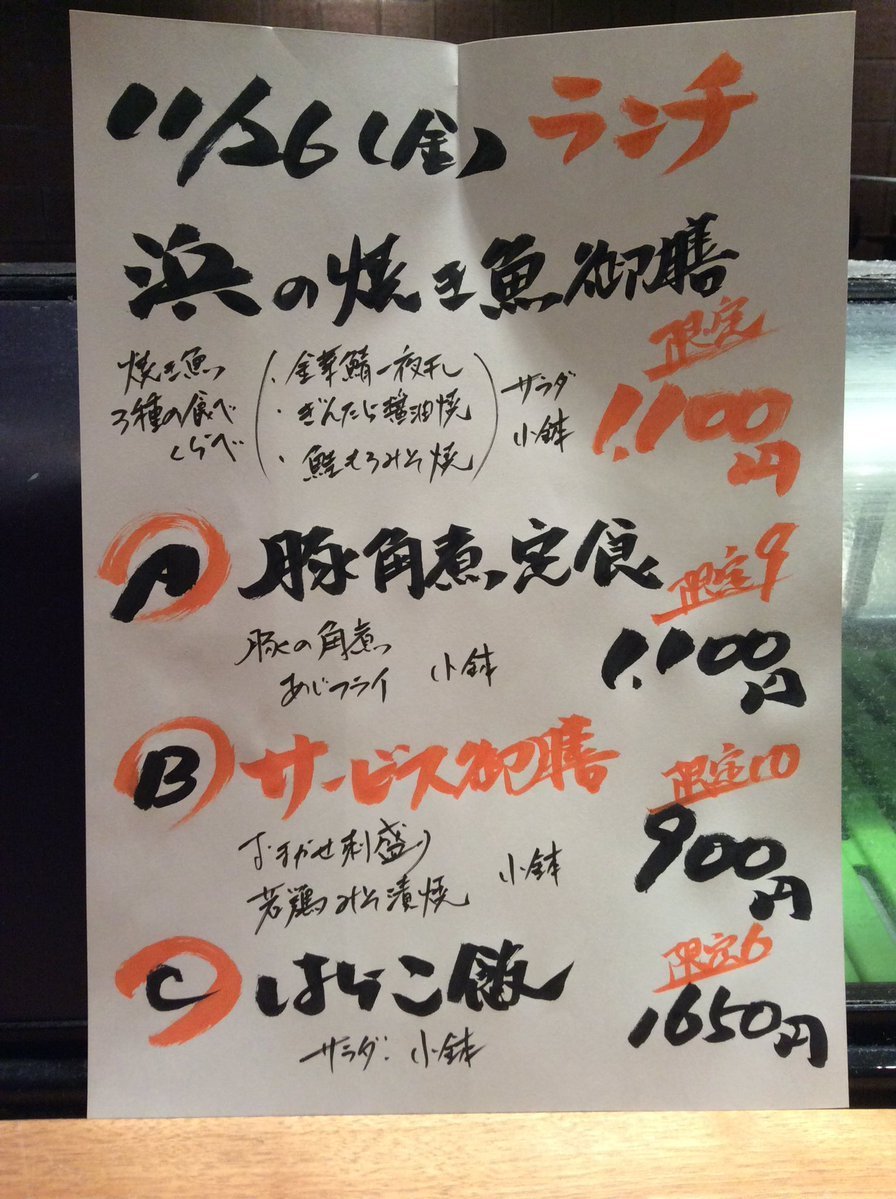 11/26(金) ランチ
浜の焼き魚御膳
限定
焼き魚
3種の食べ
くらべ
(・金華鯖一夜干し
・ぎんたら醤油焼
・鮭もろみそ焼)
サラダ
小鉢
1,100円
A 豚角煮定食
限定9
豚の角煮
あじフライ 小鉢
1,100円
B サービス御膳
限定10
おまかせ刺盛り
若鶏みそ漬焼 小鉢
900円
C はらこ飯
限定6
サラダ: 小鉢
1650円